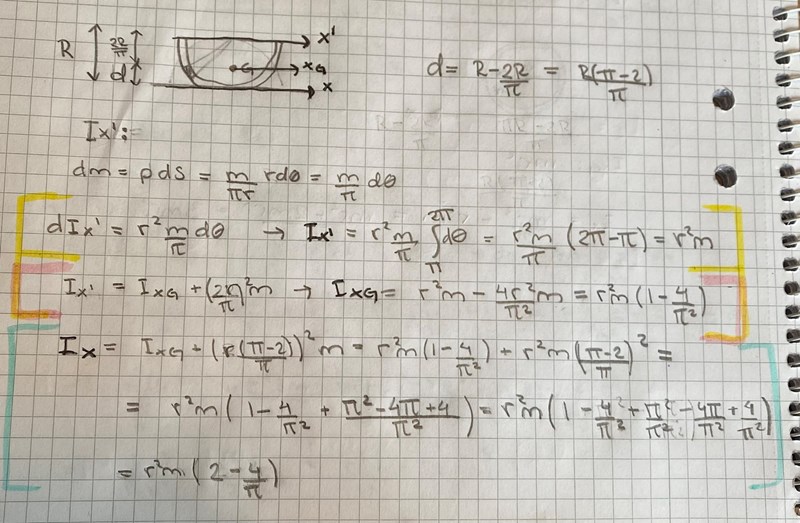 R 2R/π d G x' xG x
d = R - 2R/π = R(π-2)/π
Ix':=
dm = ρ ds = m/πr r dθ = m/π dθ
dIx' = r² m/π dθ → Ix' = r² m/π ∫_π^2π dθ = r²m/π (2π-π) = r²m
Ix' = IxG + (2r/π)² m → IxG = r²m - 4r²m/π² = r²m(1 - 4/π²)
Ix = IxG + (r(π-2)/π)² m = r²m(1 - 4/π²) + r²m(π-2/π)² =
= r²m(1 - 4/π² + π²-4π+4/π²) = r²m(1 - 4/π² + π²/π² - 4π/π² + 4/π²)
= r²m(2 - 4/π)